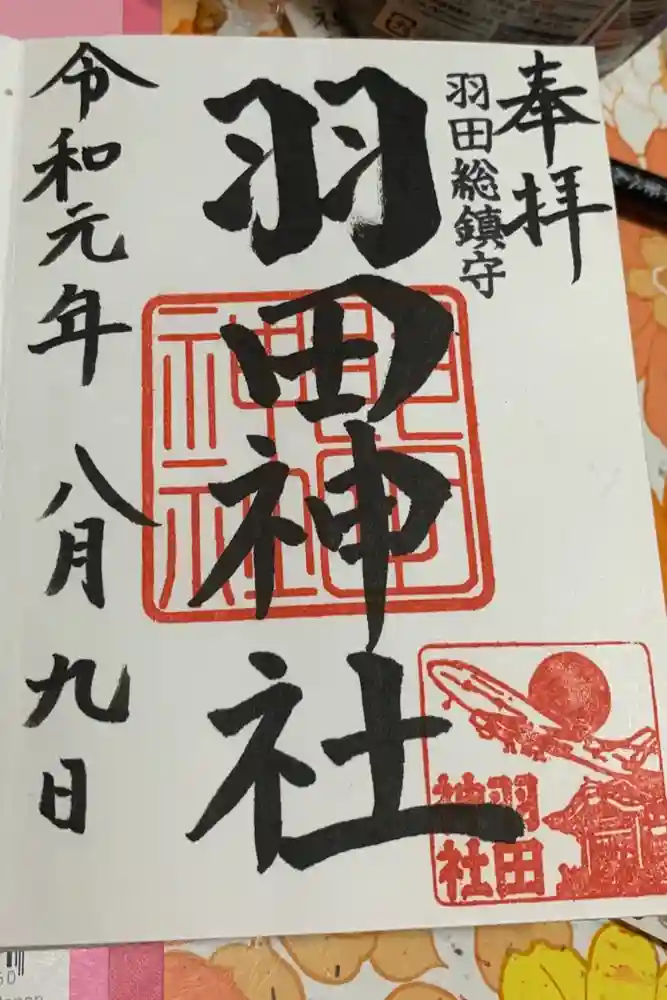 奉拝
羽田総鎮守
羽田神社
令和元年 八月 九日
羽田
神社
羽田
神社